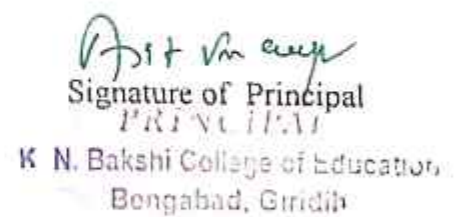 Signature of Principal
PRINCIPAL
K N. Bakshi College of Education
Bengabad, Giridih